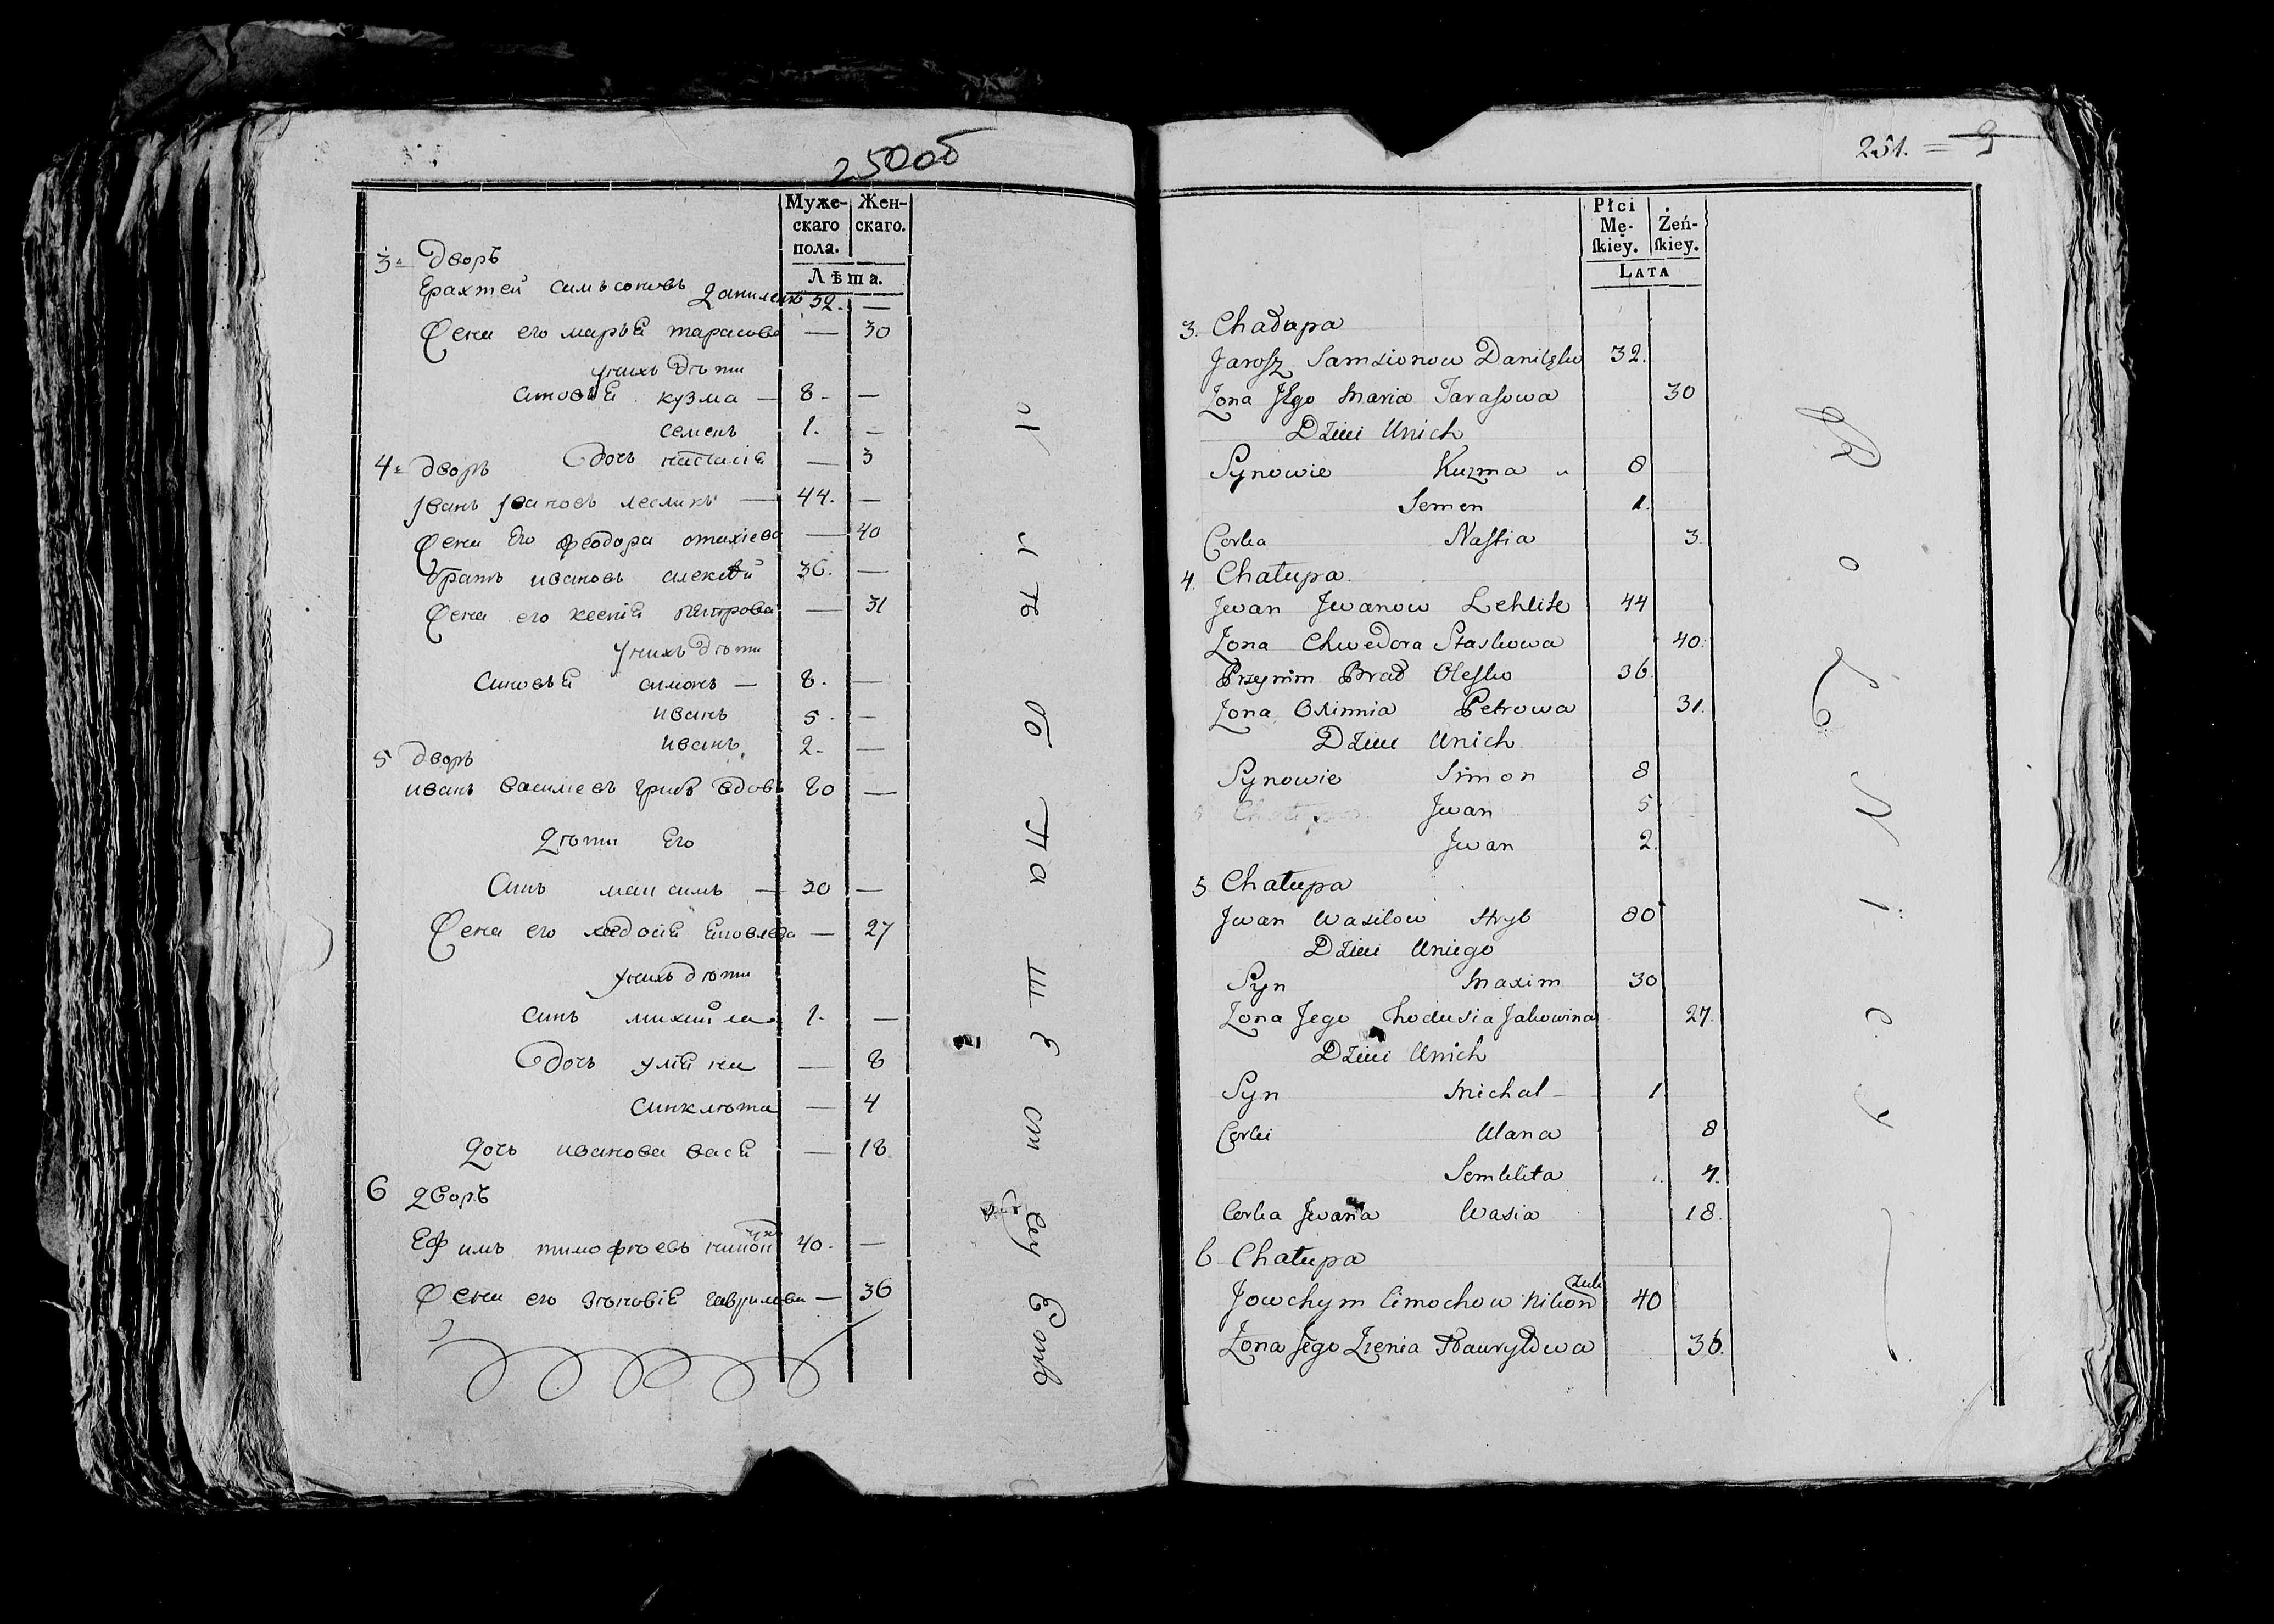 250об
Муже- Жен-
скаго скаго.
пола.
Лѣта.
3 Дворъ
Ерахтей симъсоновъ Данилейко 32. —
Жена его марья тарасова — 30
унихъ дѣти
синовья кузма — 8 — —
семенъ 1. —
дочъ настасия — 3
4 дворъ
Иванъ Ивановъ — 44. —
Жена Его феодора — 40
братъ ивановъ алексѣй 36. —
Жена его ксения петрова — 31
унихъ дѣти
синовья симонъ — 8. —
иванъ 5. —
иванъ 2. —
5 дворъ
иванъ василиевъ грибъ вдовъ 80 —
Дѣти Его
Синъ максимъ — 30 —
Жена его ходосия — 27
унихъ дѣти
синъ михайла 1. —
дочъ уляна — 8
синклѣта — 4
Дочъ иванова вася — 18
6 Дворъ
Ефимъ тимофѣевъ 40. —
Жена его зѣновия гаврилова — 36
251. = 9
Płci
Mę- Żeń-
skiey. skiey.
LATA
3. Chadupa
Jarosz Samsionow Danilęko 32.
Zona Jego Maria Tarasowa 30
Dzieci Unich
Synowie Kuzma 8
Semen 1.
Corka Nastia 3.
4. Chatupa.
Jwan Jwanow 44
Zona Chwedora Staskowa 40.
Przynim Brad Olesko 36
Zona Oxinnia Petrowa 31.
Dzieci Unich
Synowie Simon 8
Chatupa Jwan 5
Jwan 2.
5 Chatupa
Jwan Wasilow Hryb 80
Dzieci Uniego
Syn Maxim 30
Zona Jego Chodusia Jakowina 27.
Dzieci Unich
Syn Michal — 1
Corki Ulana 8
Semklita 4.
Corka Jwana Wasia 18.
6 Chatupa
Jowchym Cimochow Nikonczuk 40
Zona Jego Zienia Hawrylowa 36.